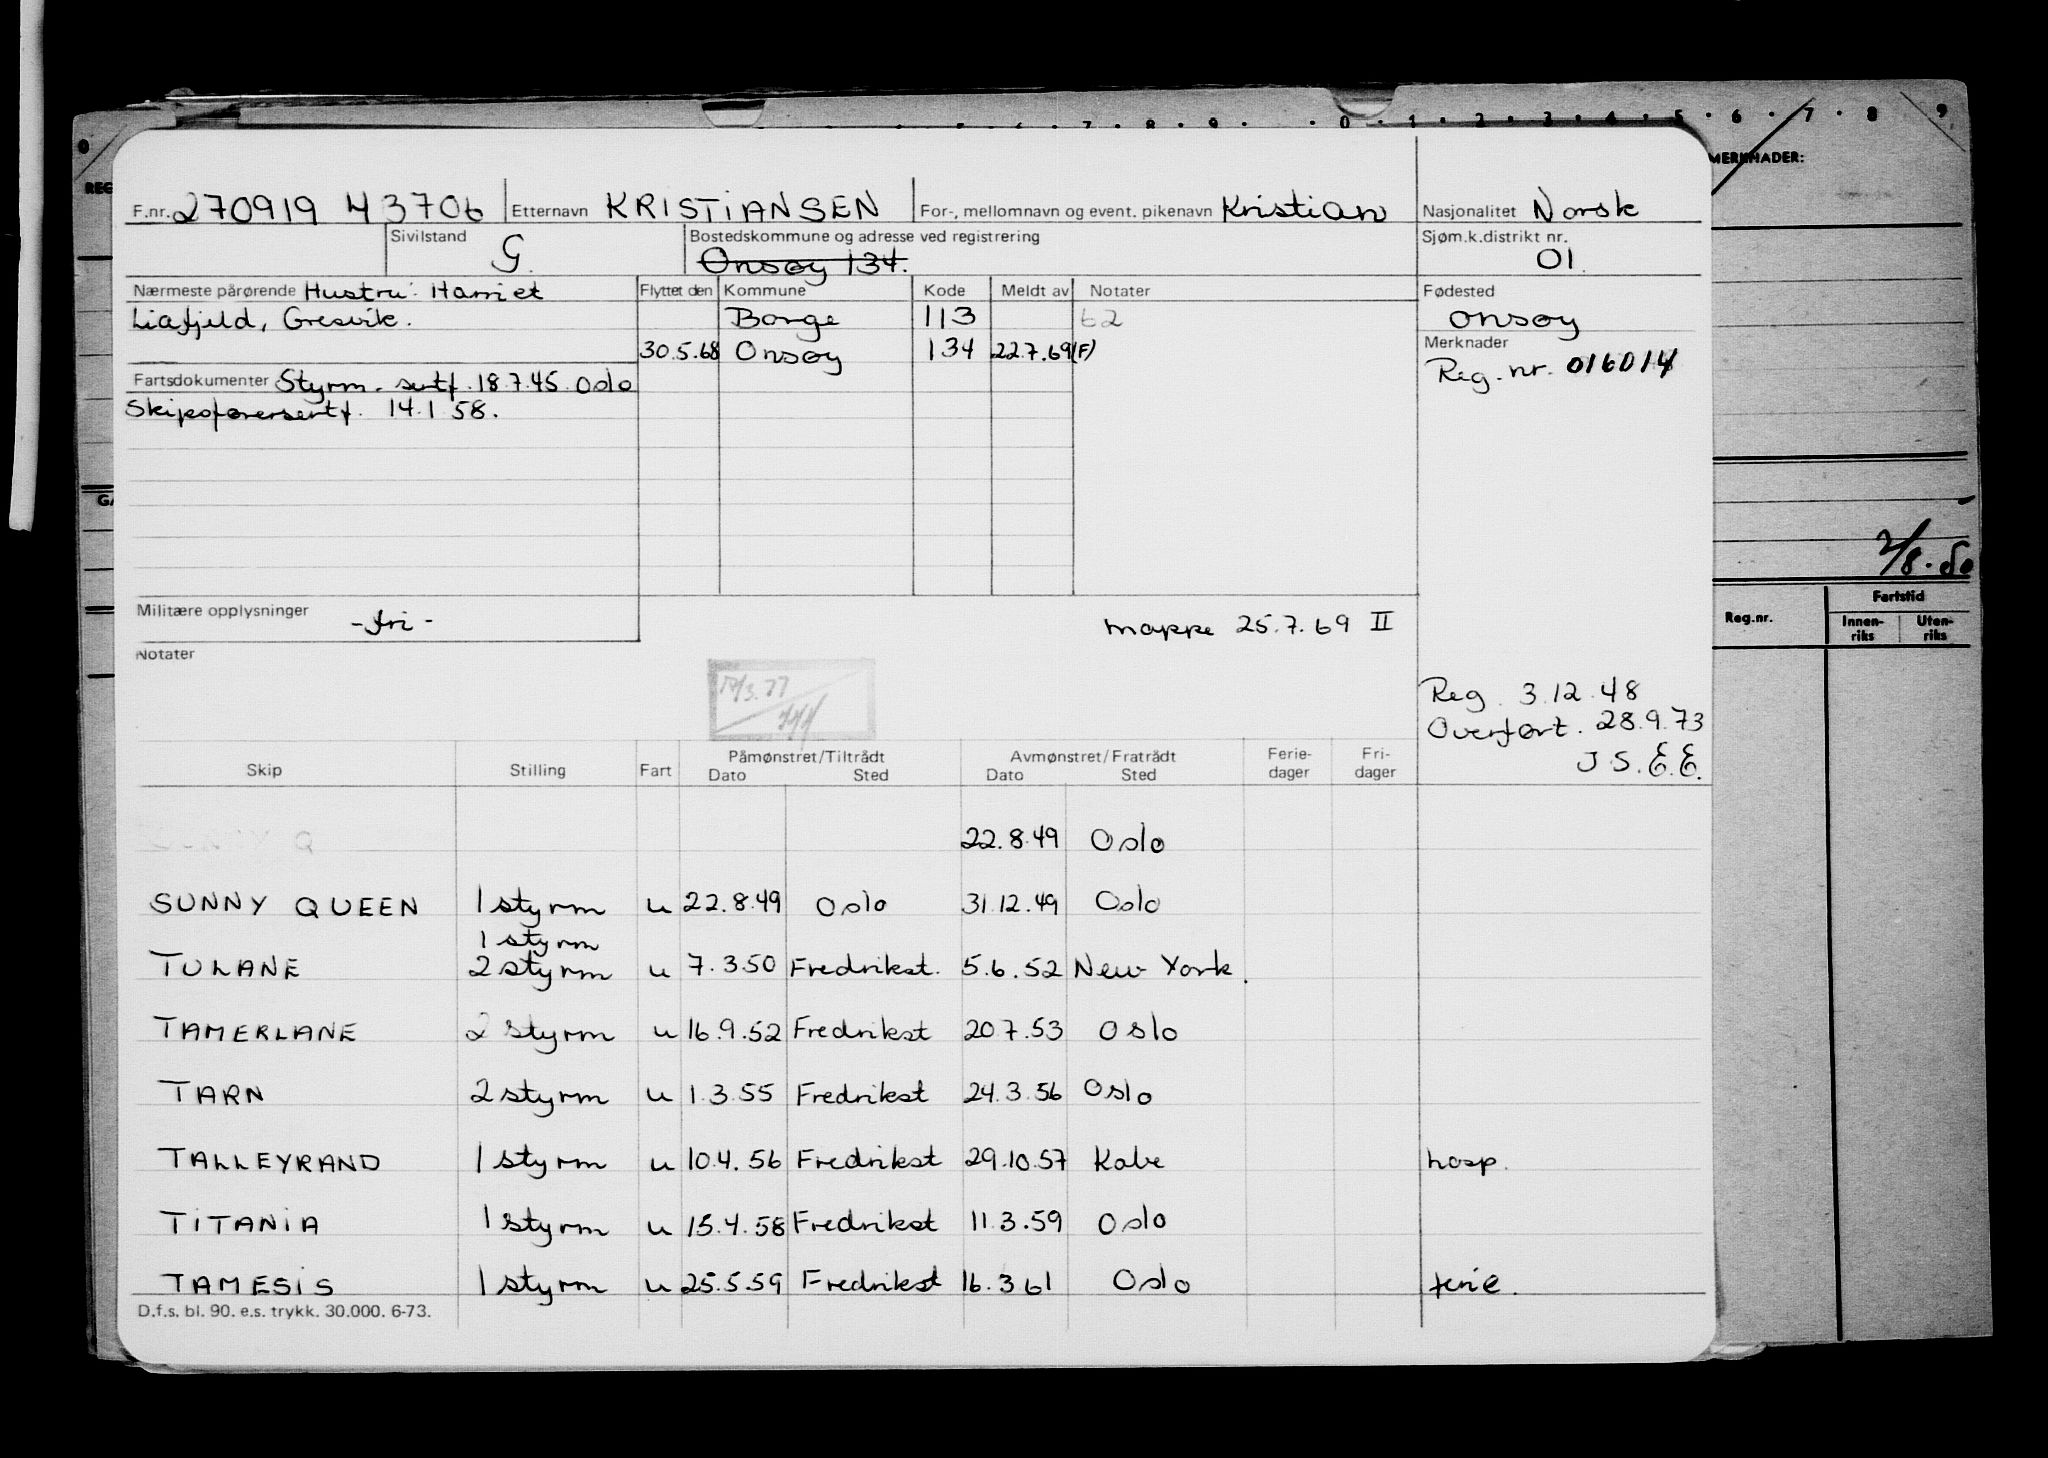 0 5 6 7 8 9 0 1 2 3 4 5 6 7 8 9
MERKNADER:
F.nr. 270919 43706 Etternavn KRISTIANSEN For-, mellomnavn og event. pikenavn Kristian Nasjonalitet Norsk
Sivilstand G. Bostedskommune og adresse ved registrering Onsøy 134. Sjøm.k.distrikt nr. 01.
Nærmeste pårørende Hustru: Harriet Flyttet den Kommune Kode Meldt av Notater Fødested
Liafjeld, Gresvik. Borge 113 62 Onsøy
30.5.68 Onsøy 134 22.7.69(F) Merknader
Reg.nr. 016014
Fartsdokumenter Styrm. sertf. 18.7.45 Oslo
Skipsførersertf. 14.1 58.
2/8-80
Reg.nr. Fartstid
Innen-riks Uten-riks
Militære opplysninger -fri-
mappe 25.7.69 II
Notater
17/3.77
Reg. 3.12.48
Overført. 28.9.73
J S. E.E.
Skip Stilling Fart Påmønstret/Tiltrådt Avmønstret/Fratrådt Ferie-dager Fri-dager
Dato Sted Dato Sted
22.8.49 Oslo
SUNNY QUEEN 1 styrm u 22.8.49 Oslo 31.12.49 Oslo
1 styrm
TULANE 2 styrm u 7.3.50 Fredrikst. 5.6.52 New York.
TAMERLANE 2 styrm u 16.9.52 Fredrikst 20.7.53 Oslo
TARN 2 styrm u 1.3.55 Fredrikst 24.3.56 Oslo
TALLEYRAND 1 styrm u 10.4.56 Fredrikst 29.10.57 Kobe hosp.
TITANIA 1 styrm u 15.4.58 Fredrikst 11.3.59 Oslo
TAMESIS 1 styrm u 25.5.59 Fredrikst 16.3 61 Oslo ferie.
D.f.s. bl. 90. e.s. trykk. 30.000. 6-73.